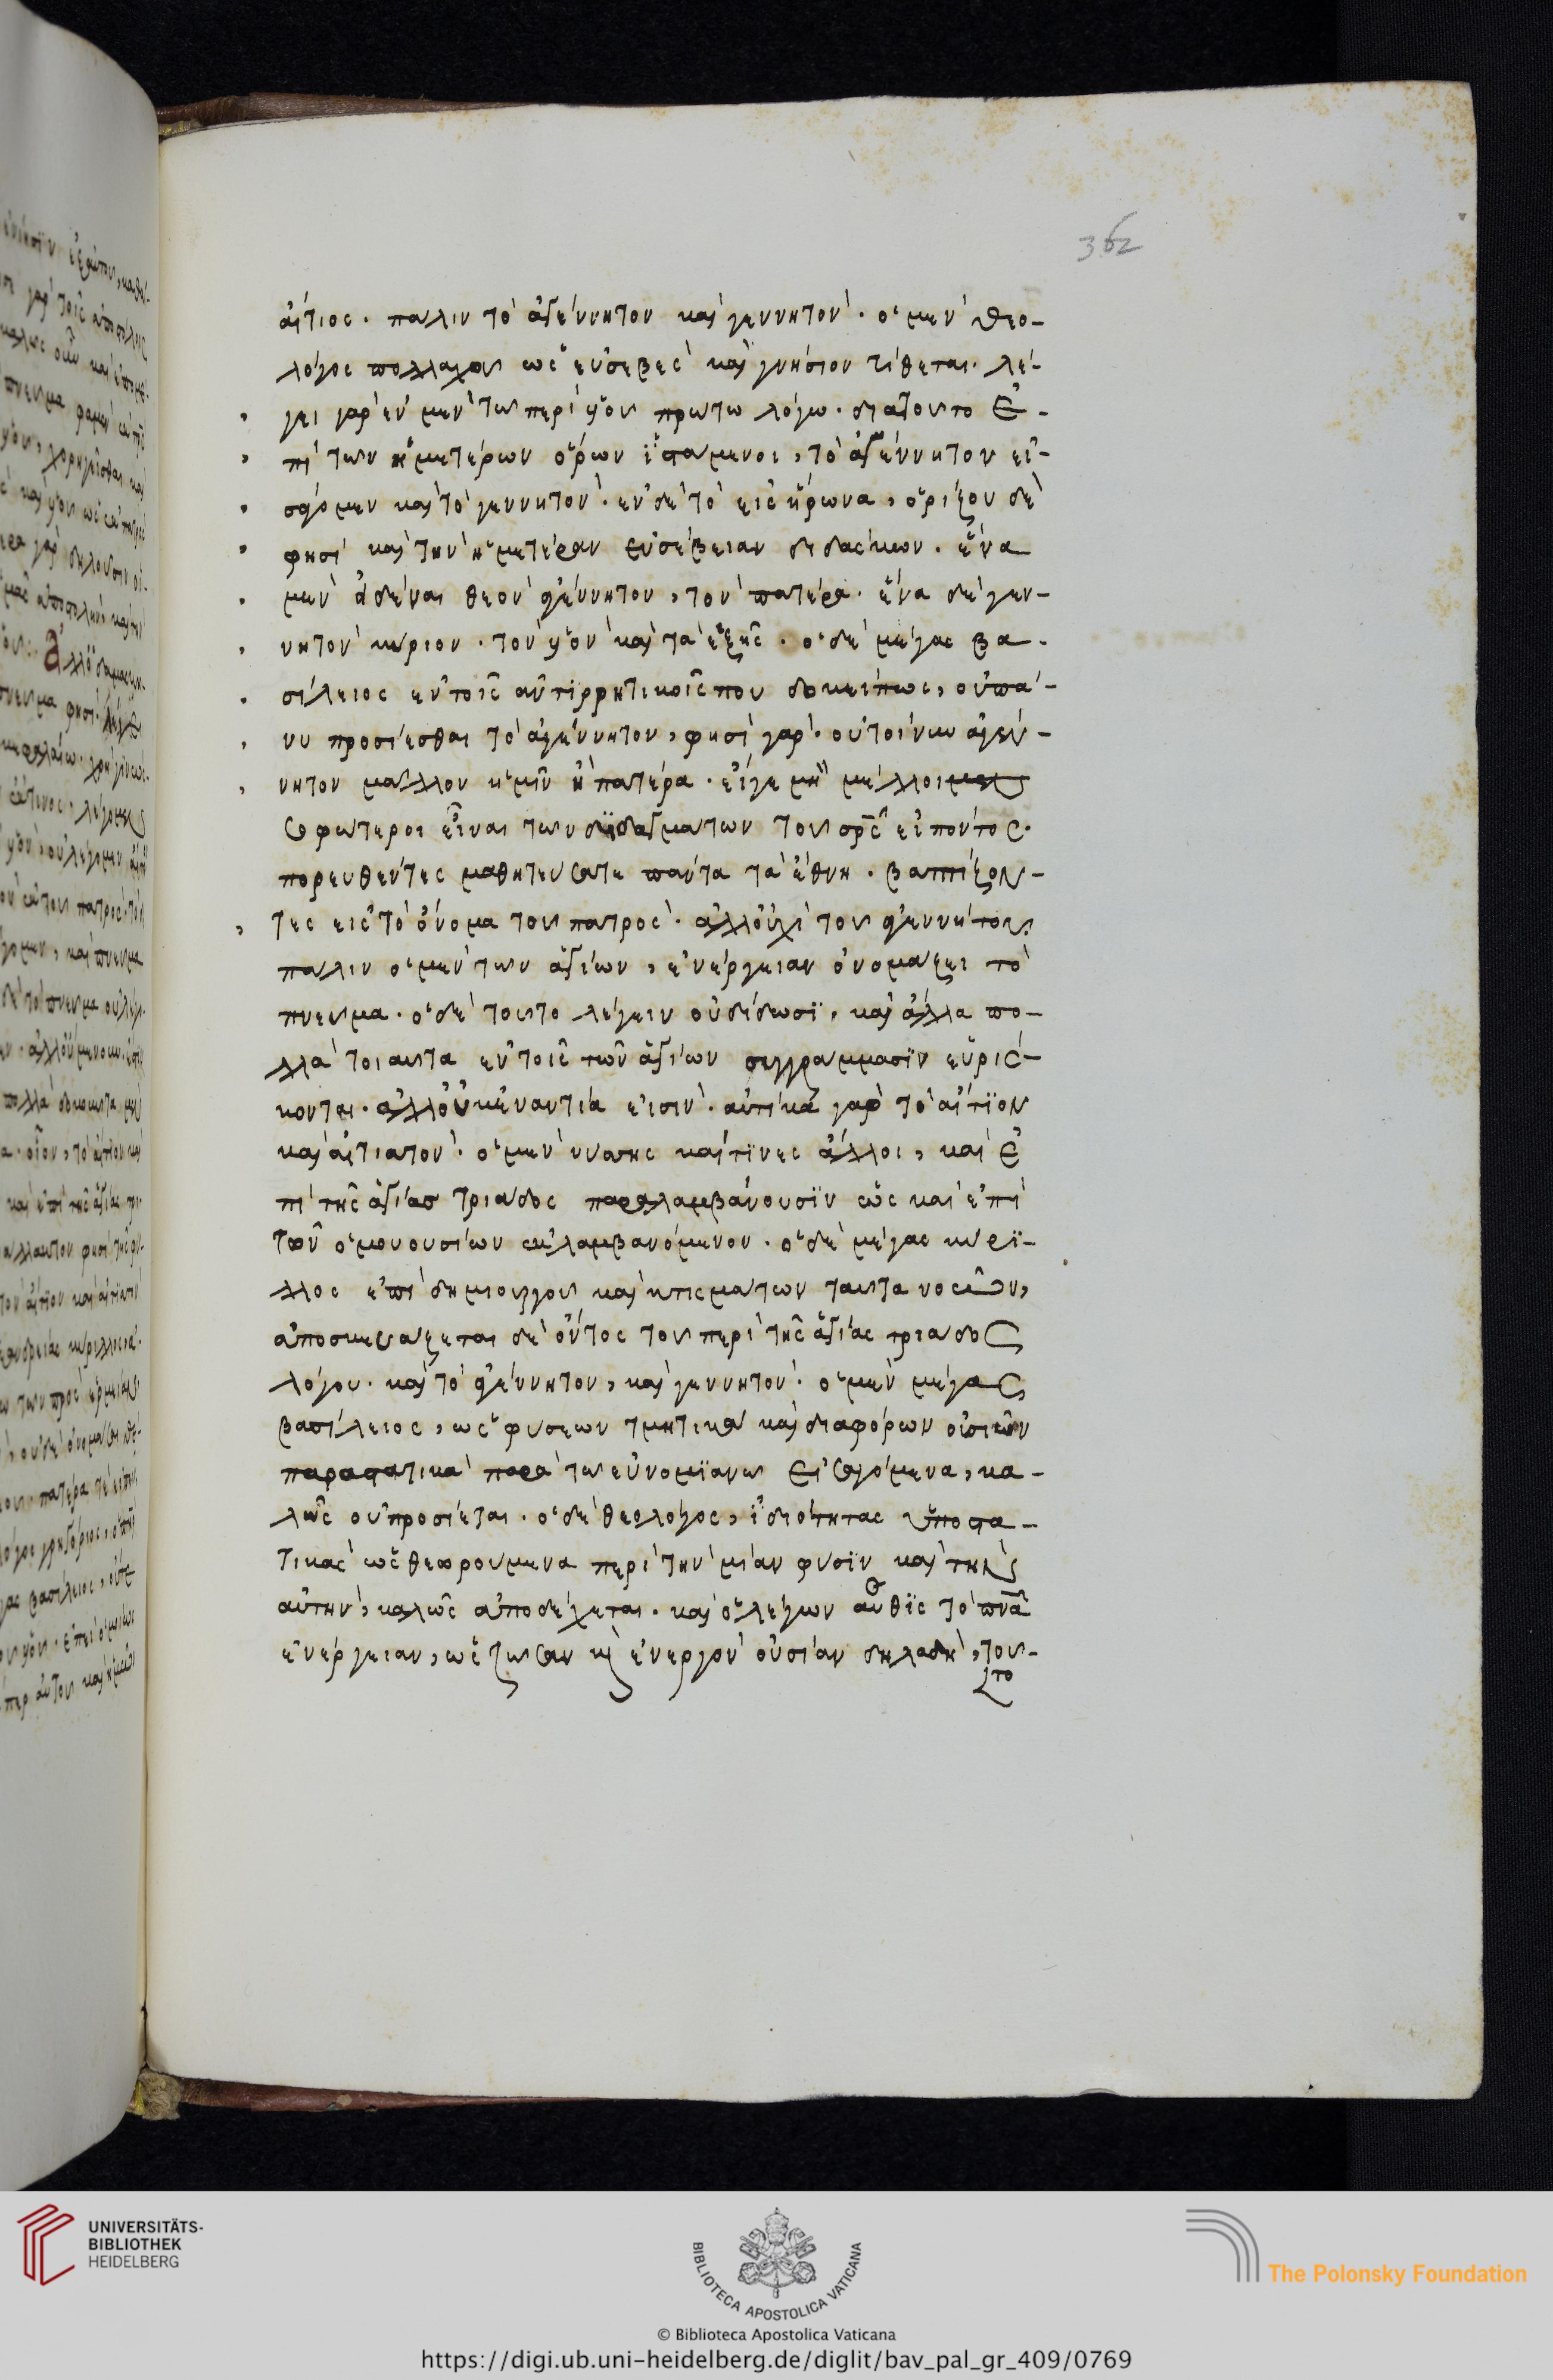 362
αἴτιος. πάλιν τὸ ἀγέννητον καὶ γεννητόν. ὁ μὲν θεο-
λόγος πολλαχοῦ ὡς εὐσεβὲς καὶ γνήσιον τίθεται. λέ-
γει γὰρ ἐν μὲν τῷ περὶ υἱοῦ πρώτω λόγω. διατοῦτο ἐ-
πὶ τῶν ἡμετέρων ὅρων ἱστάμενοι, τὸ ἀγέννητον εἰ-
σφόμεν καὶ τὸ γεννητόν. ἐν δὲ τὸ εἰς ἥρωνα, ὅριζου δὲ
φησὶ καὶ τὴν ἡμετέραν εὐσέβειαν διδάσκων. ἕνα
μὲν εἰδέναι θεὸν ἀγέννητον, τὸν πατέρα. ἕνα δὲ γεν-
νητὸν κύριον. τὸν υἱὸν καὶ τὰ ἑξῆς. ὁ δὲ μέγας βα-
σίλειος ἐν τοῖς ἀντιρρητικοῖς που δοκεῖ πως, οὐ πά-
νυ προσίεσθαι τὸ ἀγέννητον, φησὶ γάρ. οὐ τοίνυν ἀγέν-
νητον μᾶλλον ἡμῖν ἢ πατέρα. εἴγε μὴ μέλλοιμεν
σοφώτεροι εἶναι τῶν διδαγμάτων τοῦ σρς εἰπόντος.
πορευθέντες μαθητεύσατε πάντα τὰ ἔθνη. βαπτίζον-
τες εἰς τὸ ὄνομα τοῦ πατρός. ἀλλ' οὐχὶ τοῦ ἀγεννήτου.
πάλιν ὁ μὲν τῶν ἁγίων, ἐνέργειαν ὀνομάζει τὸ
πνεῦμα. ὁ δὲ τοῦτο λέγειν οὐ δίδωσι, καὶ ἄλλα πο-
λλὰ τοιαῦτα ἐν τοῖς τῶν ἁγίων συγγράμμασιν εὑρίσ-
κονται. ἀλλ' οὐκ ἐναντία εἰσίν. αὐτίκα γὰρ τὸ αἴτιον
καὶ αἰτιατόν. ὁ μὲν νύσσης καί τινες ἄλλοι, καὶ ἐ
πὶ τῆς ἁγίας τριάδος παραλαμβάνουσιν ὡς καὶ ἐπὶ
τῶν ὁμοουσίων ἐκλαμβανόμενον. ὁ δὲ μέγας κύρι-
λλος ἐπὶ δημιουργοῦ καὶ κτισμάτων ταῦτα νοῶν,
ἀποσκευάζεται δὲ ὄντος τοῦ περὶ τῆς ἁγίας τριάδος
λόγου. καὶ τὸ ἀγέννητον, καὶ γεννητόν. ὁ μὲν μέγας
βασίλειος, ὡς φύσεων τμητικὰ καὶ διαφόρων οὐσιῶν
παραστατικὰ παρὰ τῶ εὐνομιανῶ εἰσαγόμενα, κα-
λῶς οὐ προσίεται. ὁ δὲ θεολόγος, ἰδιότητας ὑποστα-
τικὰς ὡς θεωρούμενα περὶ τὴν μίαν φύσιν καὶ τὴν
αὐτὴν, καλῶς ἀποδέχεται. καὶ ὁ λέγων αὖθις τὸ πνα
ἐνέργειαν, ὡς ζῶσαν κ ἐνεργὸν οὐσίαν δηλαδὴ, τοῦ-
το
UNIVERSITÄTS-
BIBLIOTHEK
HEIDELBERG
BIBLIOTECA APOSTOLICA VATICANA
The Polonsky Foundation
© Biblioteca Apostolica Vaticana
https://digi.ub.uni-heidelberg.de/diglit/bav_pal_gr_409/0769